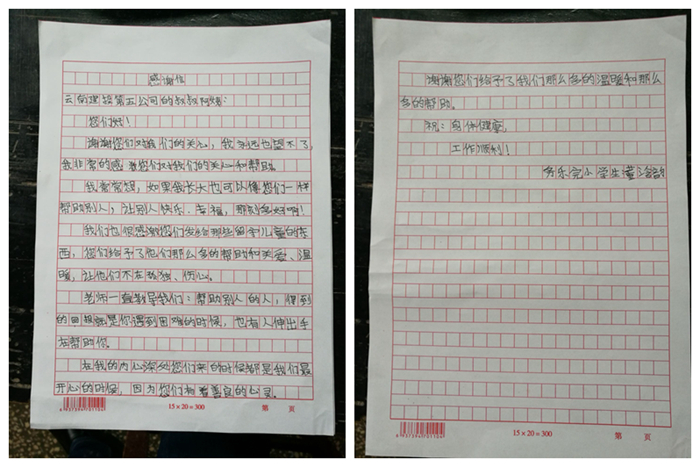 感谢信
云南建投第五公司的叔叔阿姨：
您们好！
谢谢您们对我们的关心，我永远也望不了，
我非常的感谢您们对我们的关心和帮助。
我常常想，如果我长大也可以像您们一样
帮助别人，让别人快乐、幸福，那该多好啊！
我们也很感谢您们发给那些留守儿童的东
西，您们给予了他们那么多的帮助和关爱、温
暖，让他们不在孤独、伤心。
老师一直教导我们：帮助别人的人，得到
的回报就是你遇到困难的时候，也有人伸出手
在帮助你
在我的内心深处您们来的时候都是我们最
开心的时候，因为您们有着善良的心灵。
6937394701104
15×20=300
第 页
谢谢您们给予了我们那么多的温暖和那么
多的帮助。
祝：身体健康，
工作顺利！
务乐完小 学生董
6937394701104
15×20=300
第 页